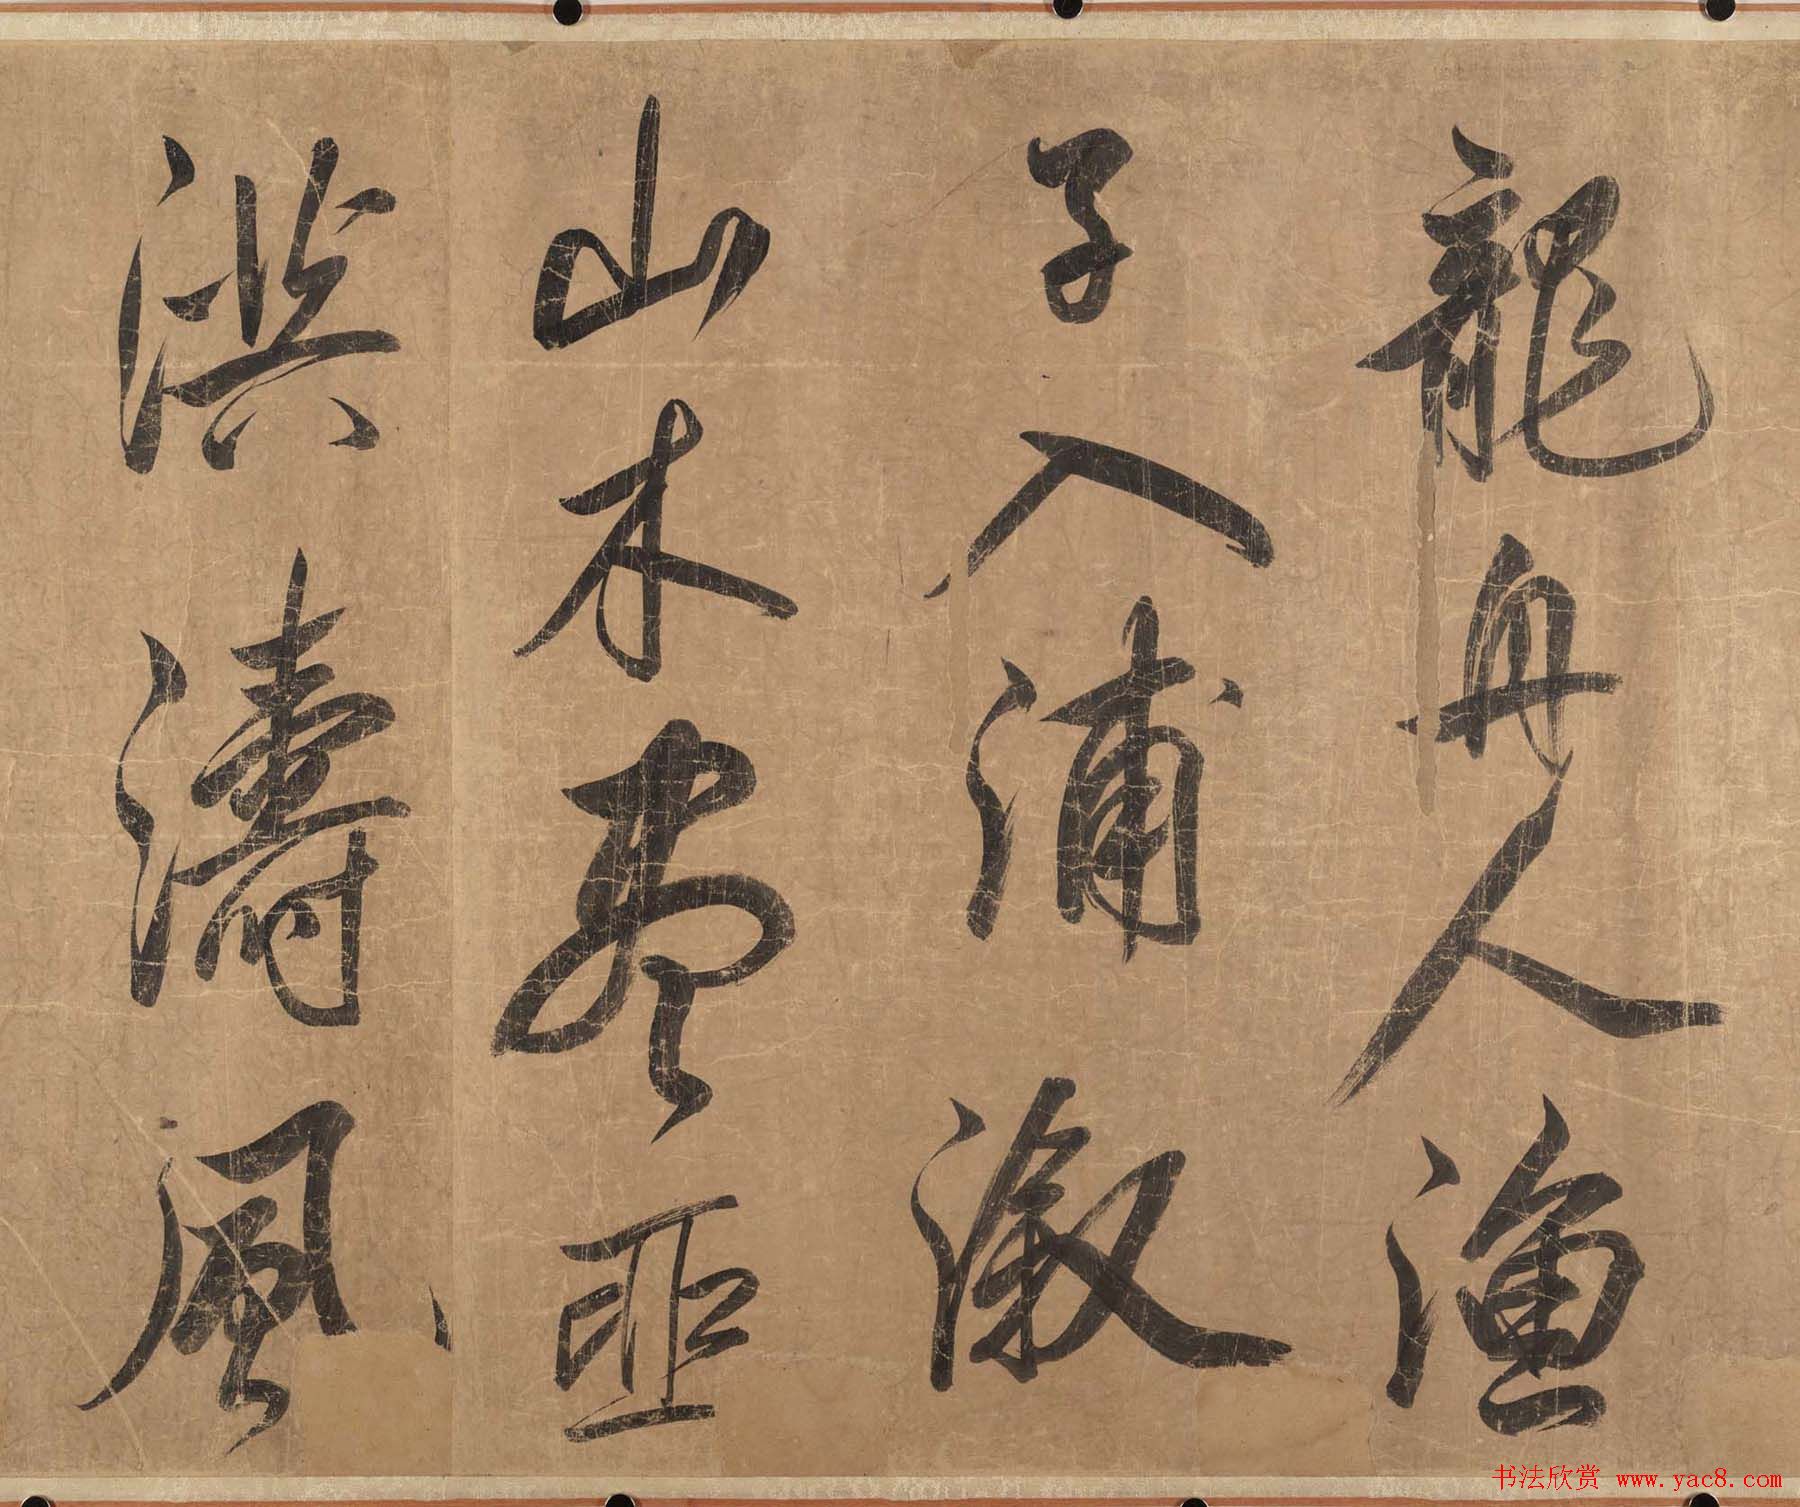 龍舟人漁
子入浦漵
山木盡亞
洪濤風
书法欣赏 www.yac8.com